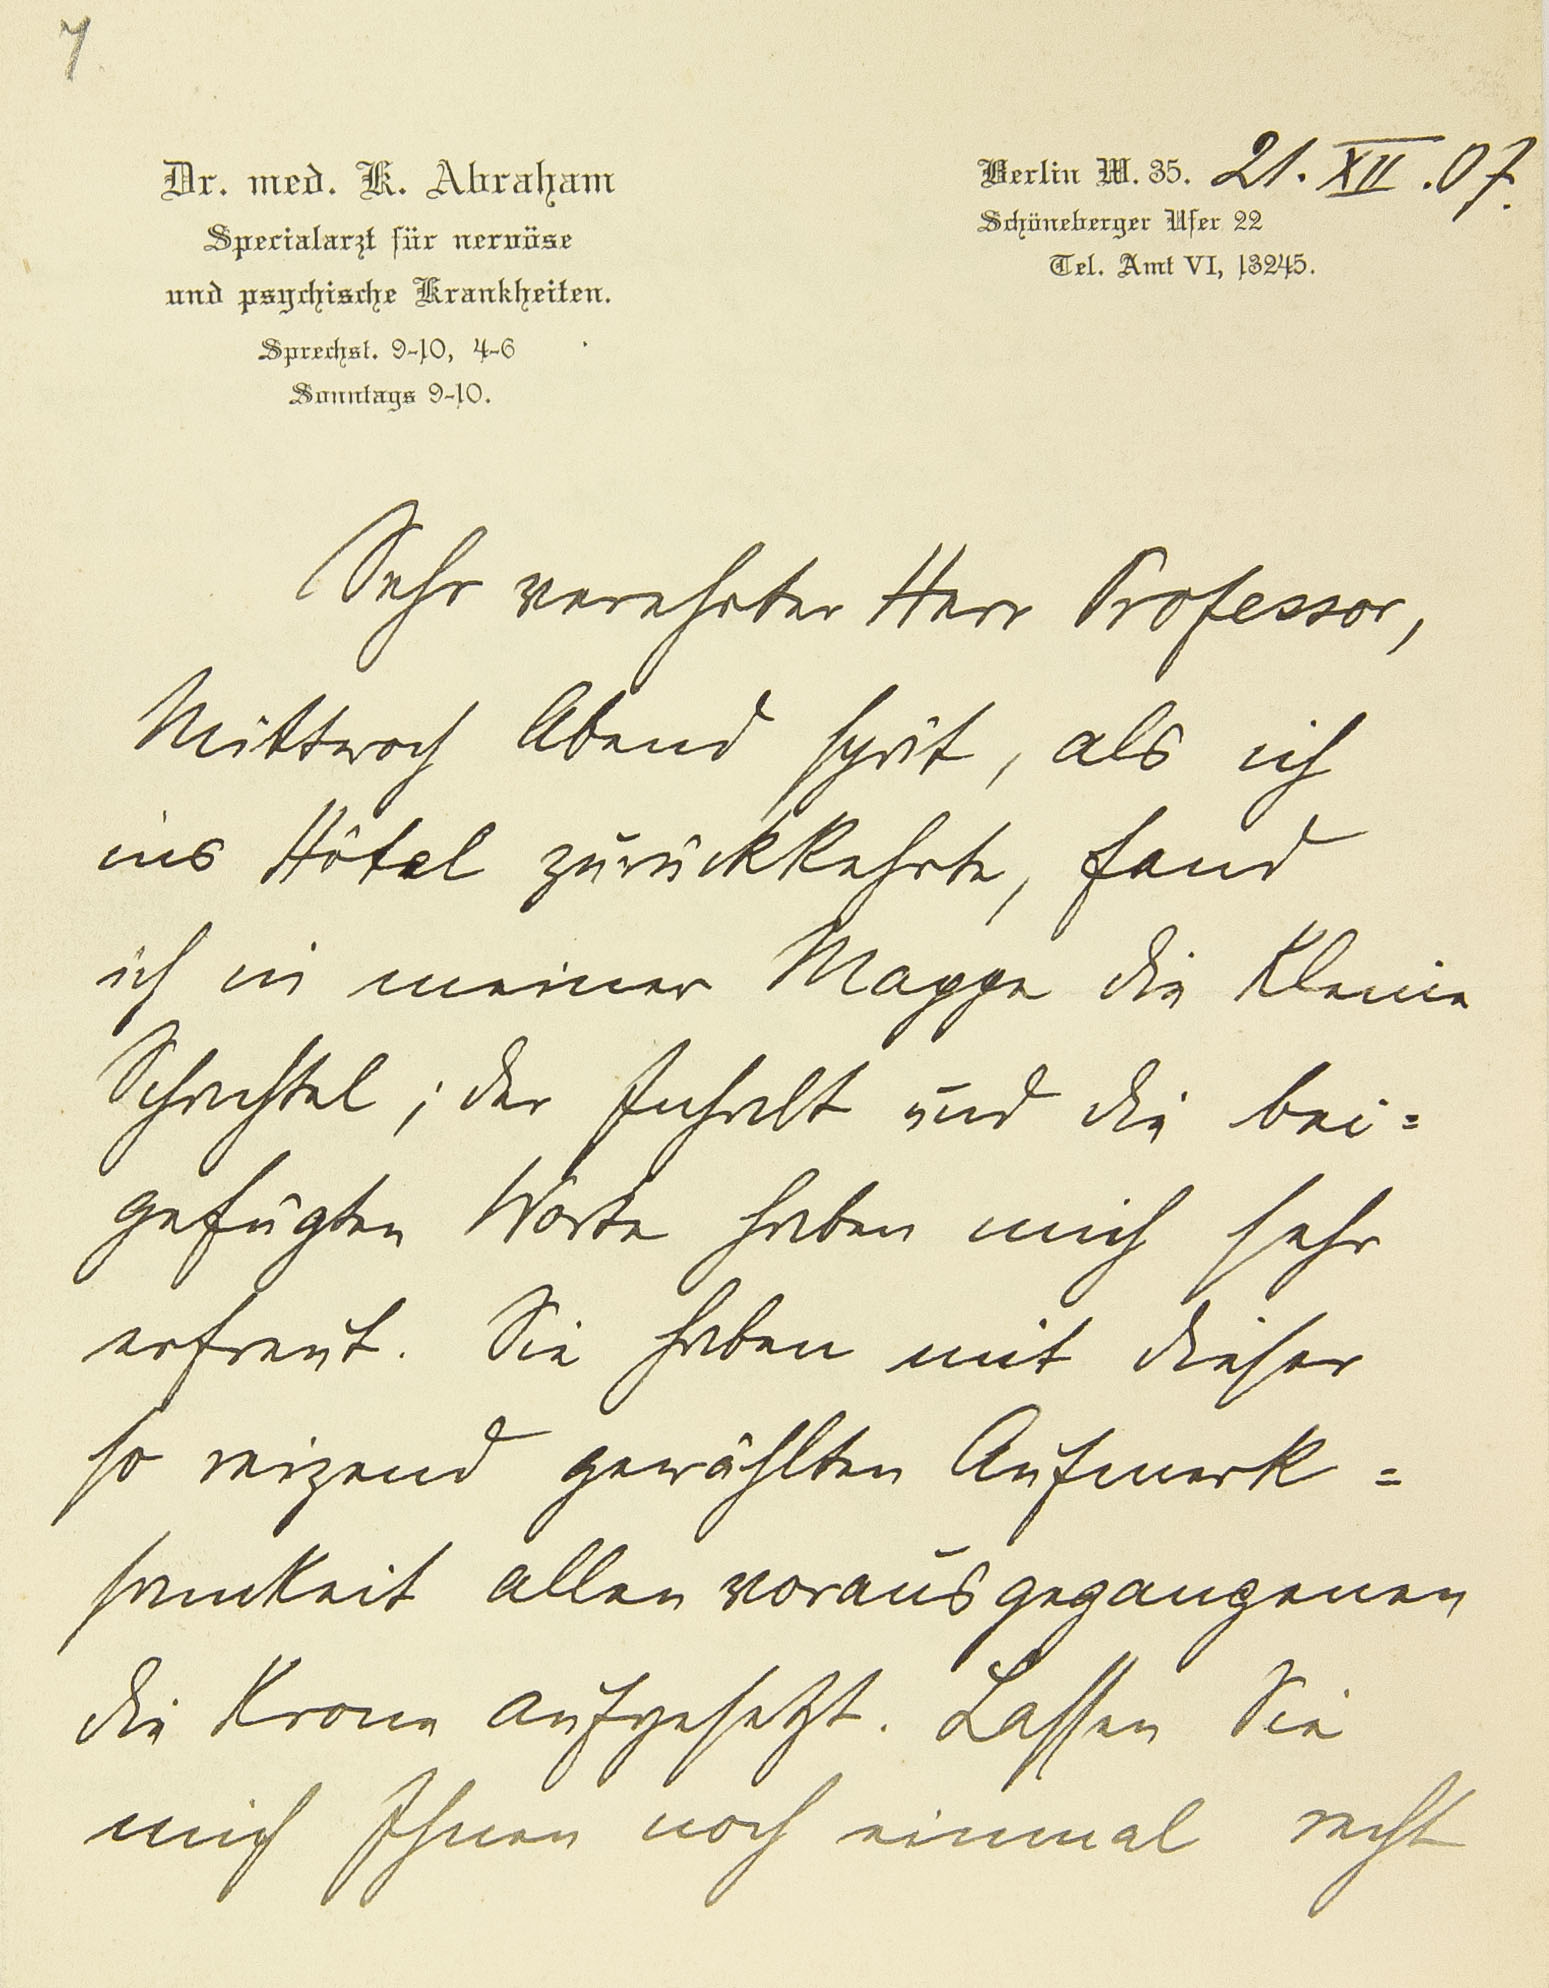 7
Dr. med. K. Abraham
Specialarzt für nervöse
und psychische Krankheiten.
Sprechst. 9-10, 4-6
Sonntags 9-10.
Berlin W. 35. 21. XII. 07.
Schöneberger Ufer 22
Tel. Amt VI, 13245.
Sehr verehrter Herr Professor,
Mittwoch Abend spät, als ich
ins Hôtel zurückkehrte, fand
ich in meiner Mappe die kleine
Schachtel; der Inhalt und die bei=
gefügten Worte haben mich sehr
erfreut. Sie haben mit dieser
so reizend gewählten Aufmerk=
samkeit allen vorausgegangenen
die Krone aufgesetzt. Lassen Sie
mich Ihnen noch einmal recht